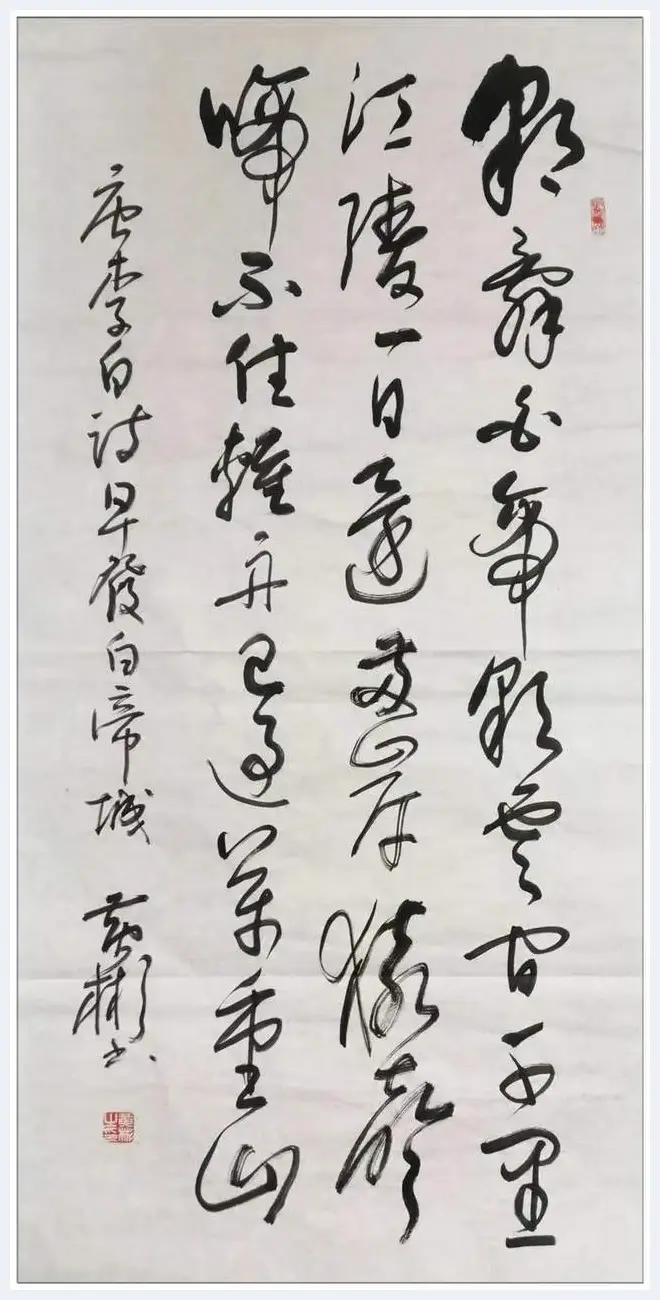 朝辭白帝彩雲間千里
江陵一日還兩岸猿聲
啼不住輕舟已過萬重山
唐李白詩早發白帝城 黄彬书